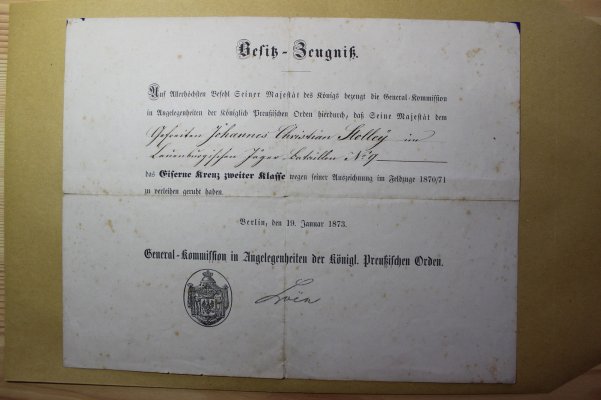 Besitz-Zeugniß.
Auf Allerhöchsten Befehl Seiner Majestät des Königs bezeugt die General-Kommission
in Angelegenheiten der Königlich Preußischen Orden hierdurch, daß Seine Majestät dem
Gefreiten Johannes Christian Stelley im
Lauenburgischen Jäger-Bataillon No 9
das Eiserne Kreuz zweiter Klasse wegen seiner Auszeichnung im Feldzuge 1870/71
zu verleihen geruht haben.
Berlin, den 19. Januar 1873.
General-Kommission in Angelegenheiten der Königl. Preußischen Orden.